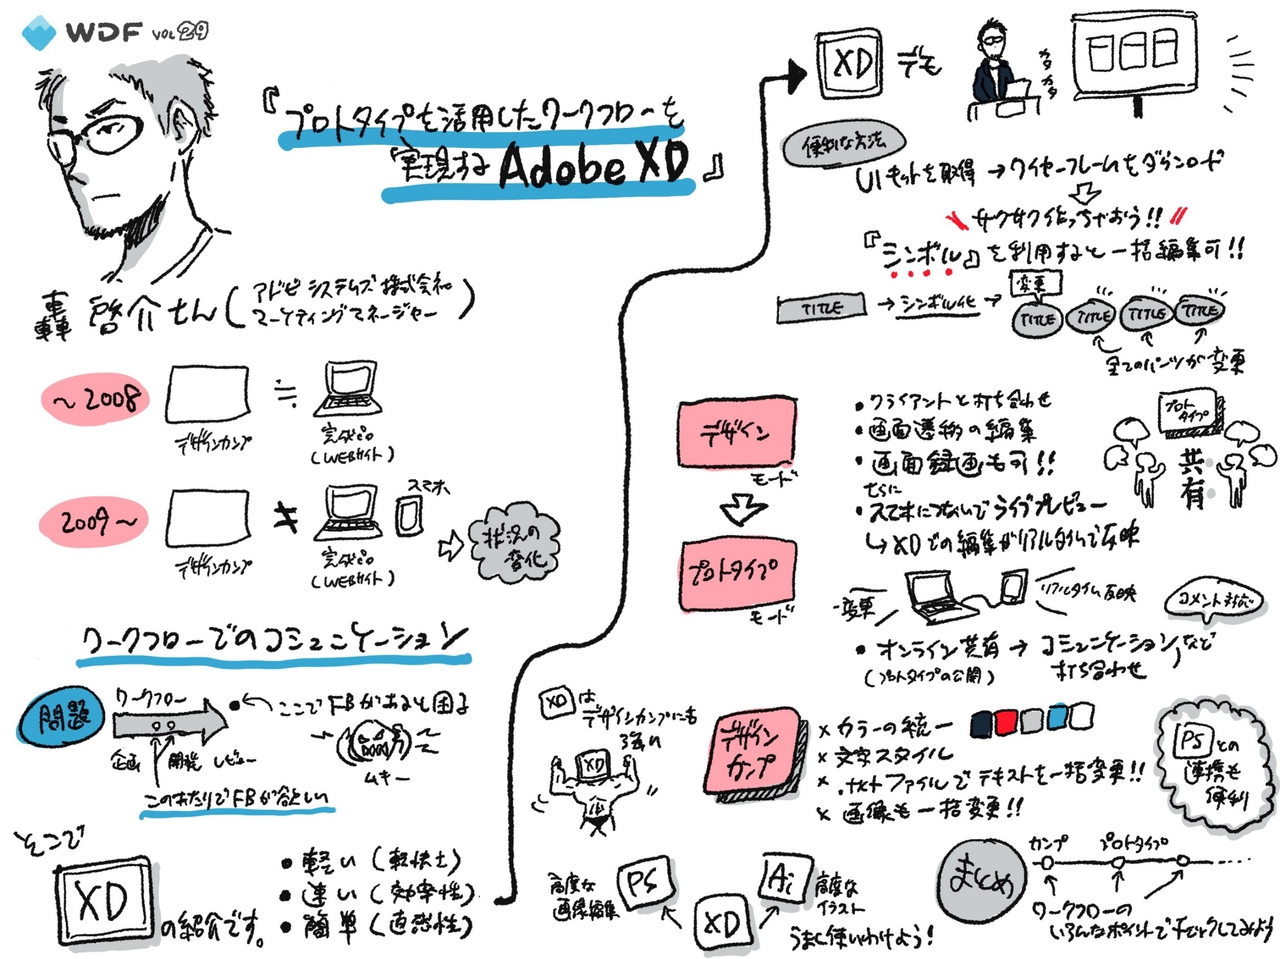 WDF VOL 29
『プロトタイプを活用したワークフローを
実現する Adobe XD』
轟 啓介さん(アドビ システムズ 株式会社
マーケティングマネージャー)
〜2008
デザインカンプ
≒
完成品
(WEBサイト)
2009〜
デザインカンプ
≠
完成品
(WEBサイト)
スマホ
状況の
変化
ワークフローでのコミュニケーション
問題
ワークフロー
企画
開発
レビュー
ここでFBがあると困る
ムキー
このあたりでFBが欲しい
そこで
XD
の紹介です。
• 軽い(軽快さ)
• 速い(効率性)
• 簡単(直感性)
XD デモ
カタ
カタ
便利な方法
UIキットを取得 → ワイヤーフレームをダウンロード
サクサク作っちゃおう!!
『シンボル』を利用すると一括編集可!!
TITLE → シンボル化 →
変更
TITLE TITLE TITLE TITLE
全てのパーツが変更
デザイン
モード
プロトタイプ
モード
• クライアントと打ち合わせ
• 画面遷移の編集
• 画面録画も可!!
さらに
• スマホにつないでライブプレビュー
↳ XDでの編集がリアルタイムで反映
プロト
タイプ
共有
変更
リアルタイム反映
コメント対応
• オンライン共有 → コミュニケーション、など
(プロトタイプの公開)
打ち合わせ
XD は
デザインカンプにも
強い
XD
デザイン
カンプ
× カラーの統一
× 文字スタイル
× .txtファイルでテキストを一括変更!!
× 画像も一括変更!!
PS との
連携も
便利
高度な
画像編集
PS
XD
Ai
高度な
イラスト
うまく使いわけよう!
まとめ
カンプ
プロトタイプ
ワークフローの
いろんなポイントでチェックしてみよう